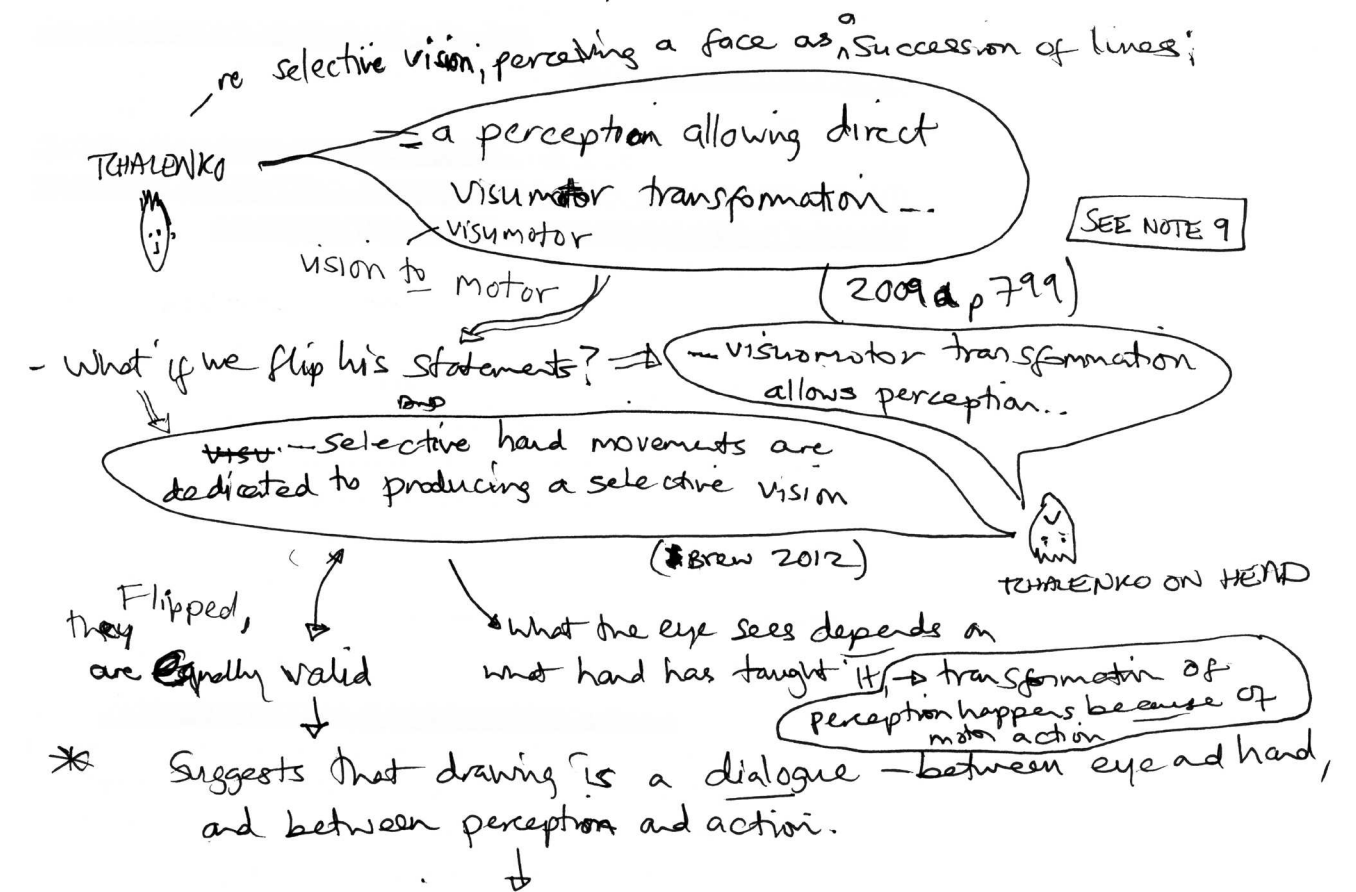 re selective vision; perceiving a face as a succession of lines;
TCHALENKO
= a perception allowing direct
visumotor transformation...
visumotor
vision to motor
SEE NOTE 9
(2009a p799)
- What if we flip his statements? ⇒
... visuomotor transformation
allows perception..
AND
VISU ... selective hand movements are
dedicated to producing a selective vision
(Brew 2012)
TCHALENKO ON HEAD
Flipped,
they
are equally valid
what the eye sees depends on
what hand has taught it, → transformatin of
perception happens because of
motor action
* Suggests that drawing is a dialogue – between eye ad hand,
and between perception and action.